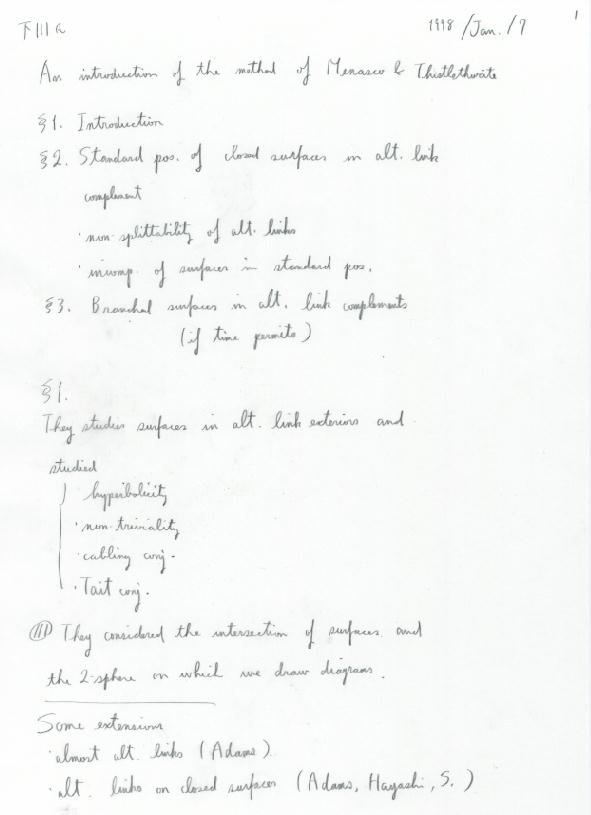 1998/Jan./7 1
An introduction of the method of Menasco & Thistlethwaite
§1. Introduction
§2. Standard pos. of closed surfaces in alt. link
complement
· non-splittability of alt. links
· incomp. of surfaces in standard pos.
§3. Branched surfaces in alt. link complements
(if time permits)
§1.
They studies surfaces in alt. link exteriors and
studied
hyperbolicity
· non-triviality
· cabling conj.
· Tait conj.
They considered the intersection of surfaces and
the 2-sphere on which we draw diagrams.
Some extensions
· almost alt. links (Adams)
· alt. links on closed surfaces (Adams, Hayashi, S.)